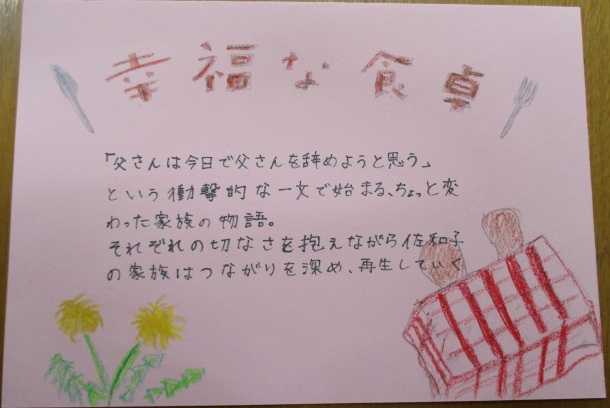 幸福な食卓
「父さんは今日で父さんを辞めようと思う」
という衝撃的な一文で始まる、ちょっと変
わった家族の物語。
それぞれの切なさを抱えながら佐和子
の家族はつながりを深め、再生していく